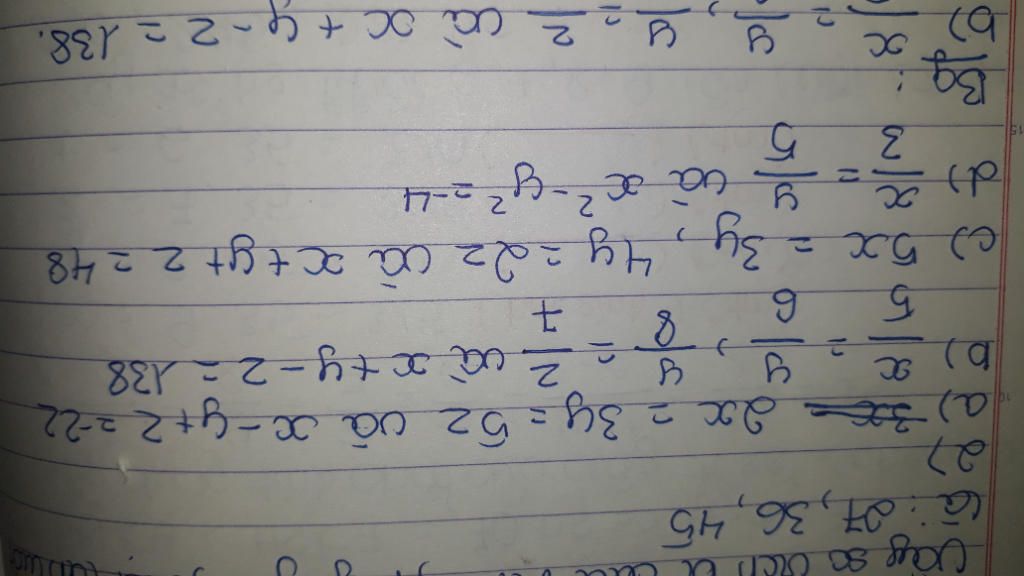 Vậy số
là: 27, 36, 45
2)
a) 2x = 3y = 5z và x - y + z = -22
b) x/5 = y/6, y/8 = z/7 và x + y - z = 138
c) 5x = 3y, 4y = 2z và x + y + z = 48
d) x/3 = y/5 và x² - y² = -4
Bg:
b) x = y, y = z và x + y - z = 138.